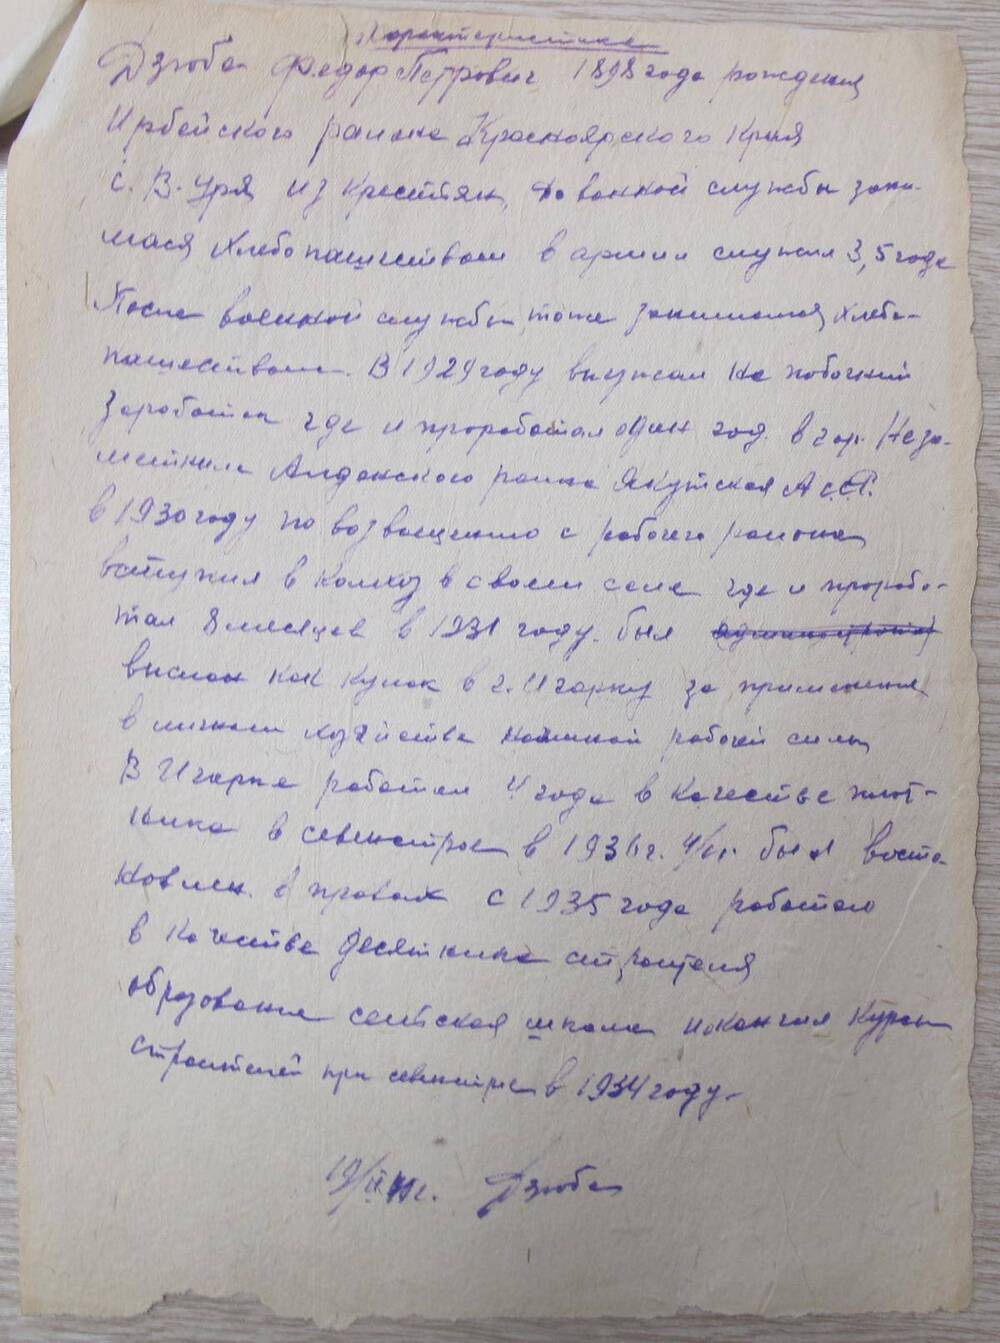 Характеристика
Дзюба Федор Петрович 1898 года рождения
Ирбейского района Красноярского Края
с. В. Уря из крестьян, до военной службы зани-
мался хлебопашеством в армии служил 3,5 года
После военной службы тоже занимался хлебо-
пашеством. В 1929 году выезжал на побочный
заработок где и проработал один год. в гор. Неза-
метный Алданского района Якутская АССР.
в 1930 году по возвращению с рабочего района
вступил в колхоз в своем селе где и прорабо-
тал 8 месяцев в 1931 году был
выслан как кулак в г. Игарку за применения
в личном хозяйстве наемной рабочей силы
В Игарке работал 4 года в качестве плот-
ника в севенстрое в 1936 г. был воста-
новлен в правах с 1935 года работаю
в качестве десятника строителя
образование сельская школа и окончил курсы
строителей при севенстрое в 1934 году.
19/II 41 г. Дзюба